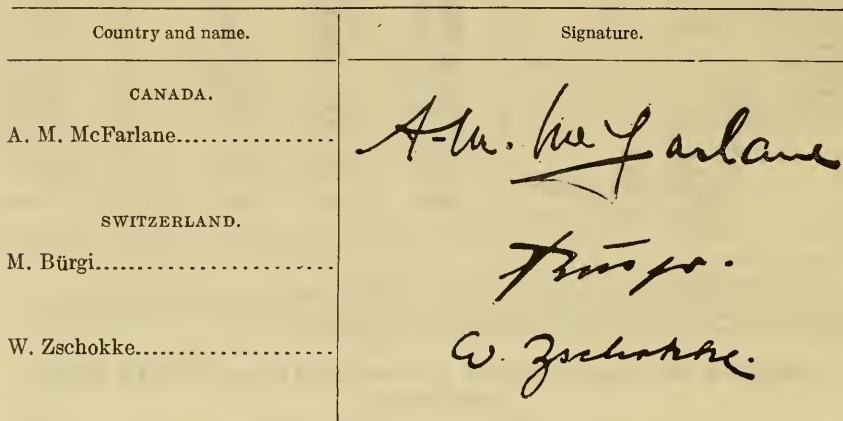 Country and name. Signature.
CANADA.
A. M. McFarlane.................... A. M. McFarlane
SWITZERLAND.
M. Bürgi............................ Bürgi.
W. Zschokke........................ W. Zschokke.